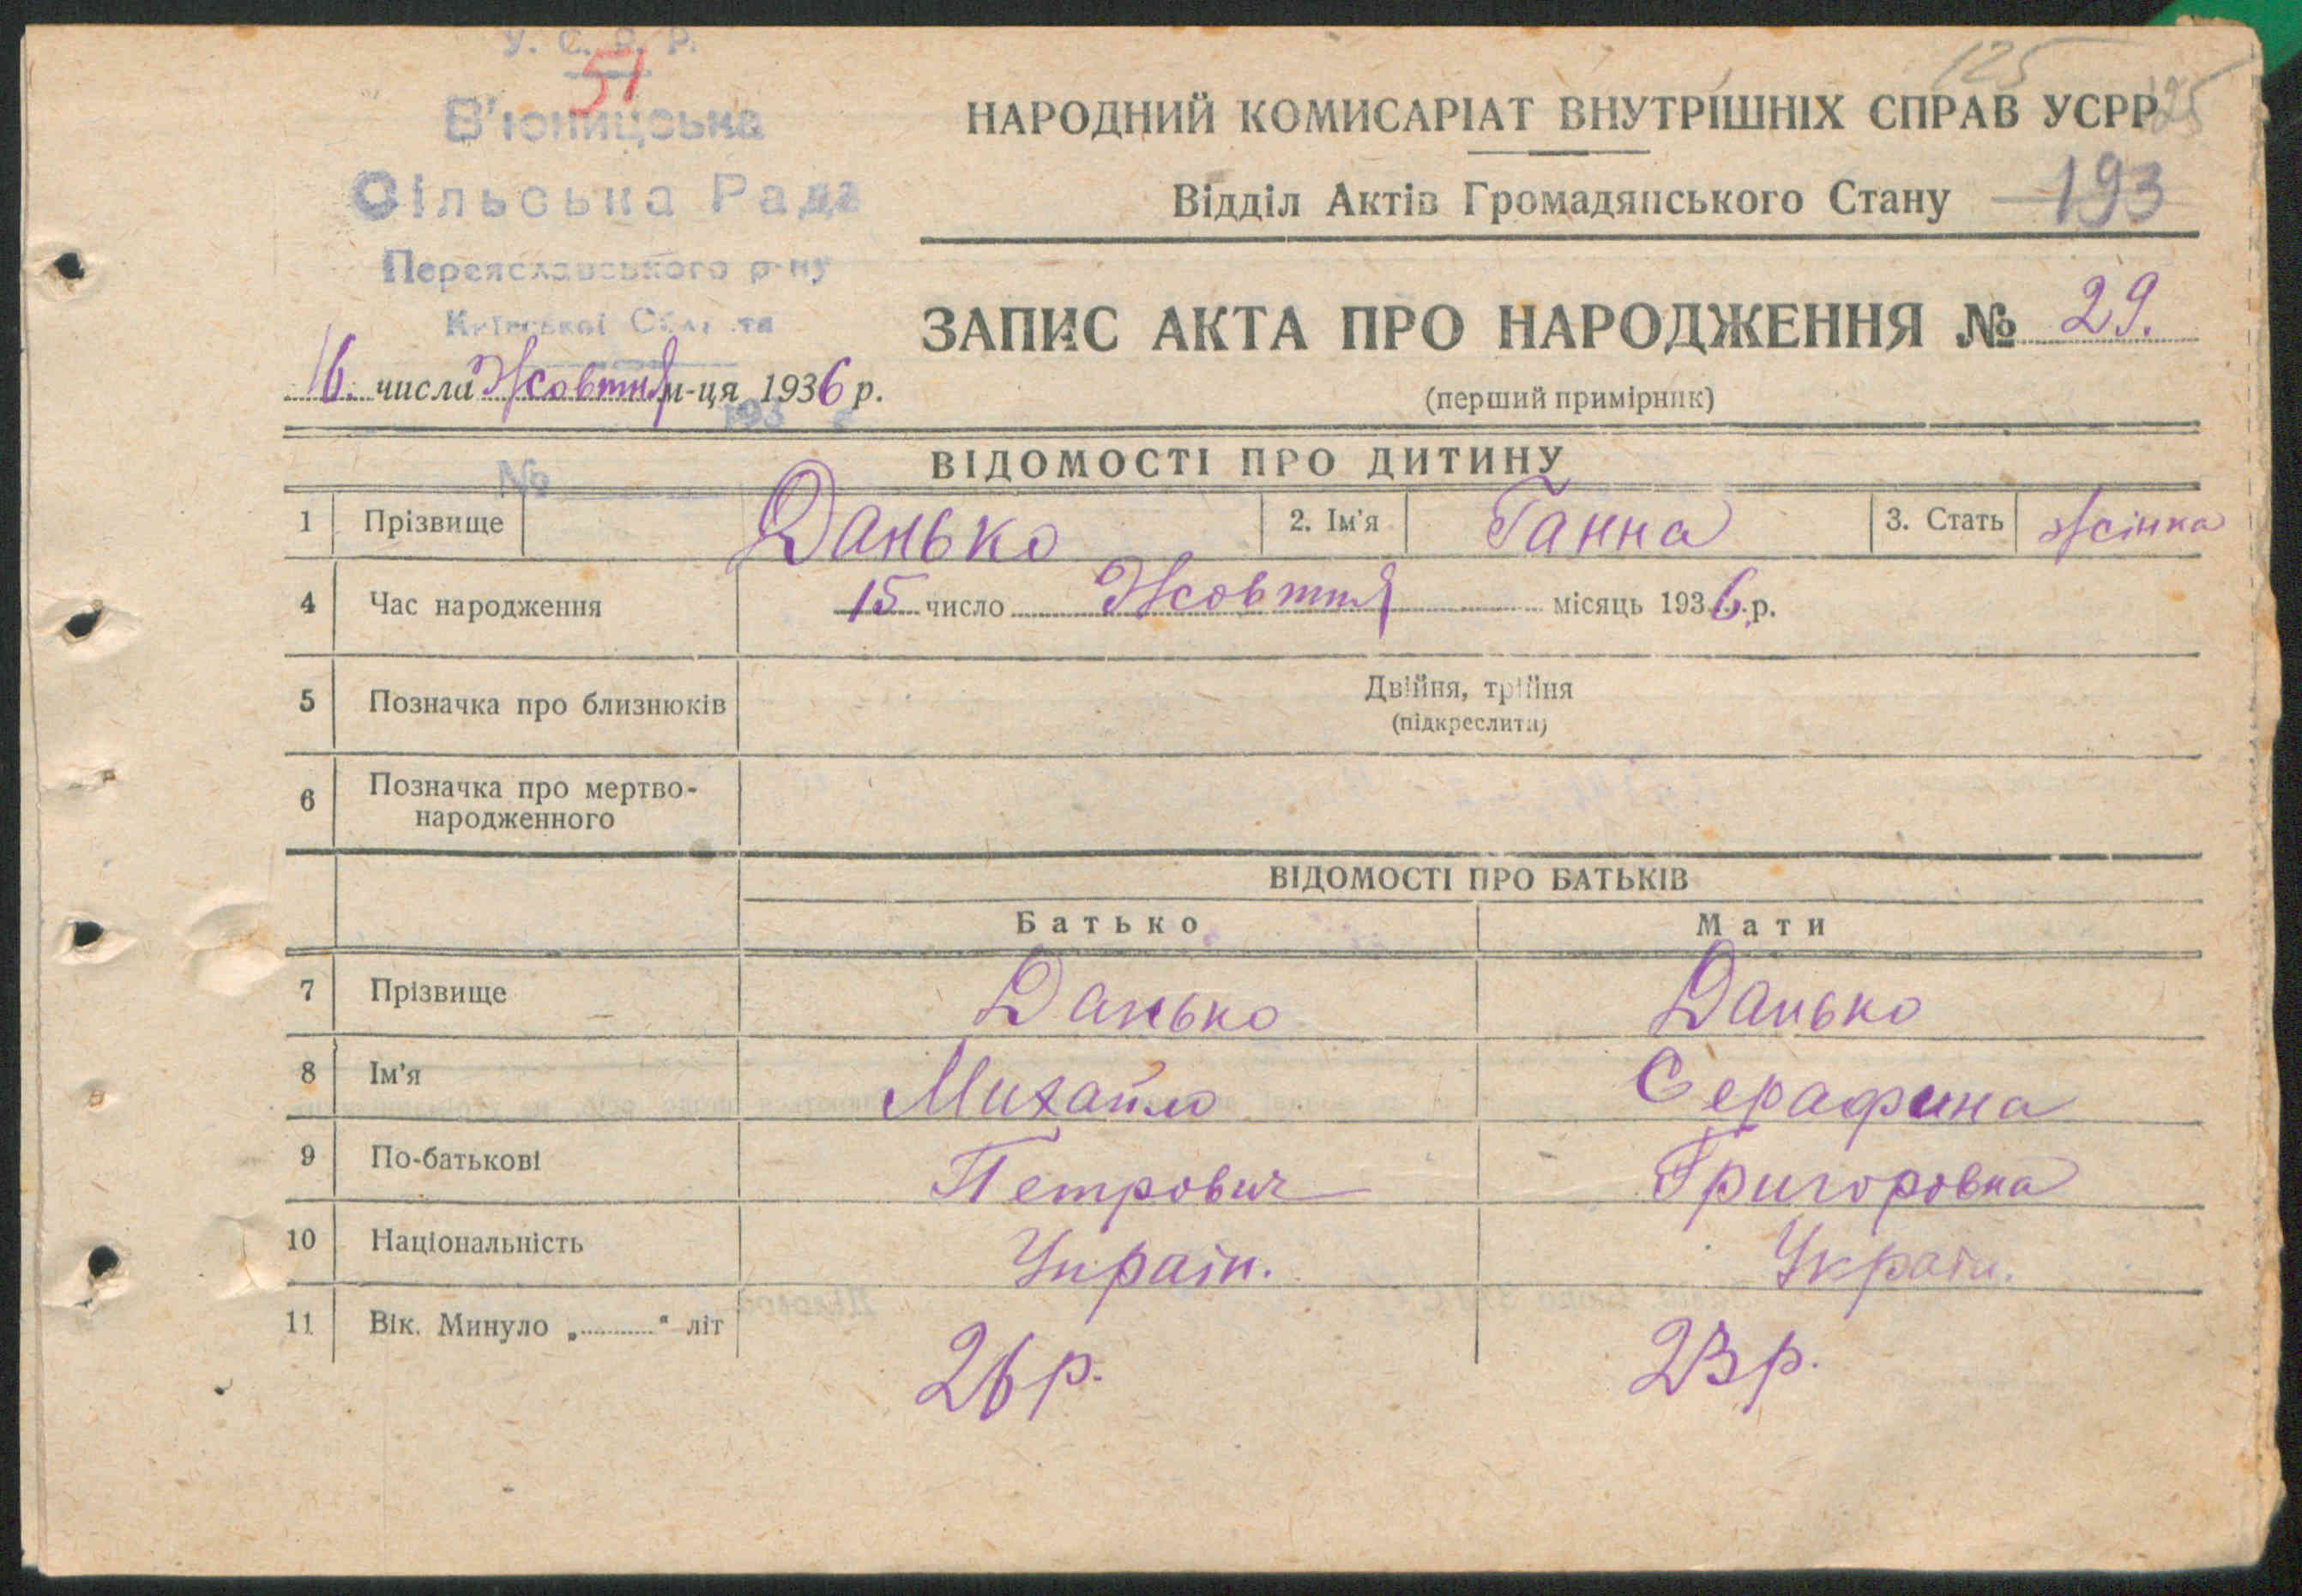 У. С. Р. Р.
51
В'юницська
Сільська Рада
Переяславського р-ну
Київської
16. числа Жовтня м-ця 1936 р.
193
№
125
125
НАРОДНИЙ КОМИСАРІАТ ВНУТРІШНІХ СПРАВ УСРР
Відділ Актів Громадянського Стану
193
ЗАПИС АКТА ПРО НАРОДЖЕННЯ № 29.
(перший примірник)
ВІДОМОСТІ ПРО ДИТИНУ
1 Прізвище Данько 2. Ім'я Ганна 3. Стать жінка
4 Час народження 15 число Жовтня місяць 1936. р.
5 Позначка про близнюків Двійня, трійня
(підкреслити)
6 Позначка про мертво-
народженного
ВІДОМОСТІ ПРО БАТЬКІВ
Батько Мати
7 Прізвище Данько Данько
8 Ім'я Михайло Серафина
9 По-батькові Петрович Григоровна
10 Національність Україн. Україн.
11 Вік. Минуло „ “ літ 26 р. 23 р.